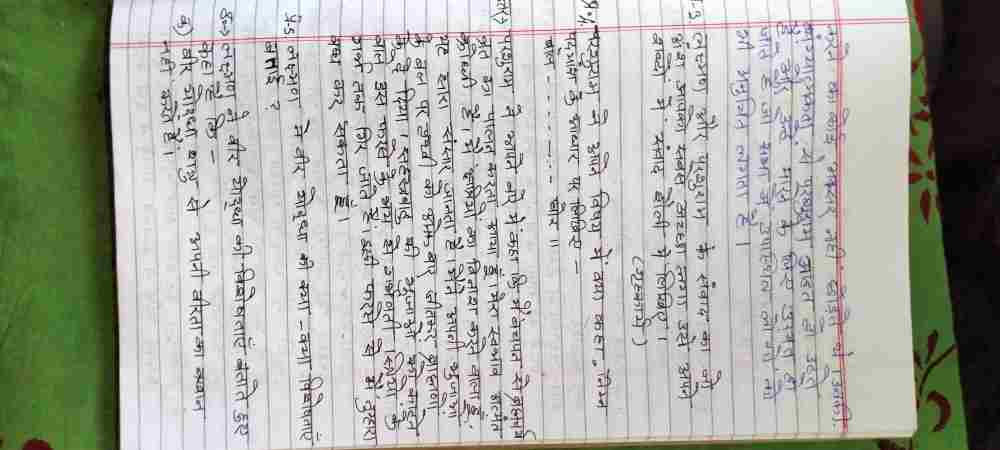 करने का कोई अवसर नहीं छोड़ते थे। उनकी
व्यंग्योक्तियों से परशुराम आहत हो उठते
हैं और उन्हें मारने के लिए उद्यत हो
जाते हैं जो सभा में उपस्थित लोगों को
भी अनुचित लगता है।
प्र.3 लक्ष्मण और परशुराम के संवाद का जो
अंश आपको सबसे अच्छा लगा उसे अपने
शब्दों में संवाद शैली में लिखिए।
(गृहकार्य)
प्र.4 परशुराम ने अपने विषय में क्या कहा, निम्न
पद्यांश के आधार पर लिखिए –
बाल - - - - - - - घोर॥
उत्तर→ परशुराम ने अपने बारे में कहा कि मैं बचपन से ब्रह्मचर्य
व्रत का पालन करता आया हूँ। मेरा स्वभाव अत्यंत
क्रोधी है। मैं क्षत्रियों का विनाश करने वाला हूँ,
यह सारा संसार जानता है। मैंने अपनी भुजाओं
के बल पर पृथ्वी को अनेक बार जीतकर ब्राह्मणों
को दे दिया। सहस्रबाहु की भुजाओं को काटने
वाले इस फरसे के भय से गर्भवती स्त्रियों के
गर्भ तक गिर जाते हैं। इसी फरसे से मैं तुम्हारा
वध कर सकता हूँ।
प्र.5 लक्ष्मण ने वीर योद्धा की क्या-क्या विशेषताएँ
बताई ?
उ.→ लक्ष्मण ने वीर योद्धा की विशेषताएं बताते हुए
कहा है कि –
a) वीर योद्धा शत्रु से अपनी वीरता का बखान
नहीं करते हैं।